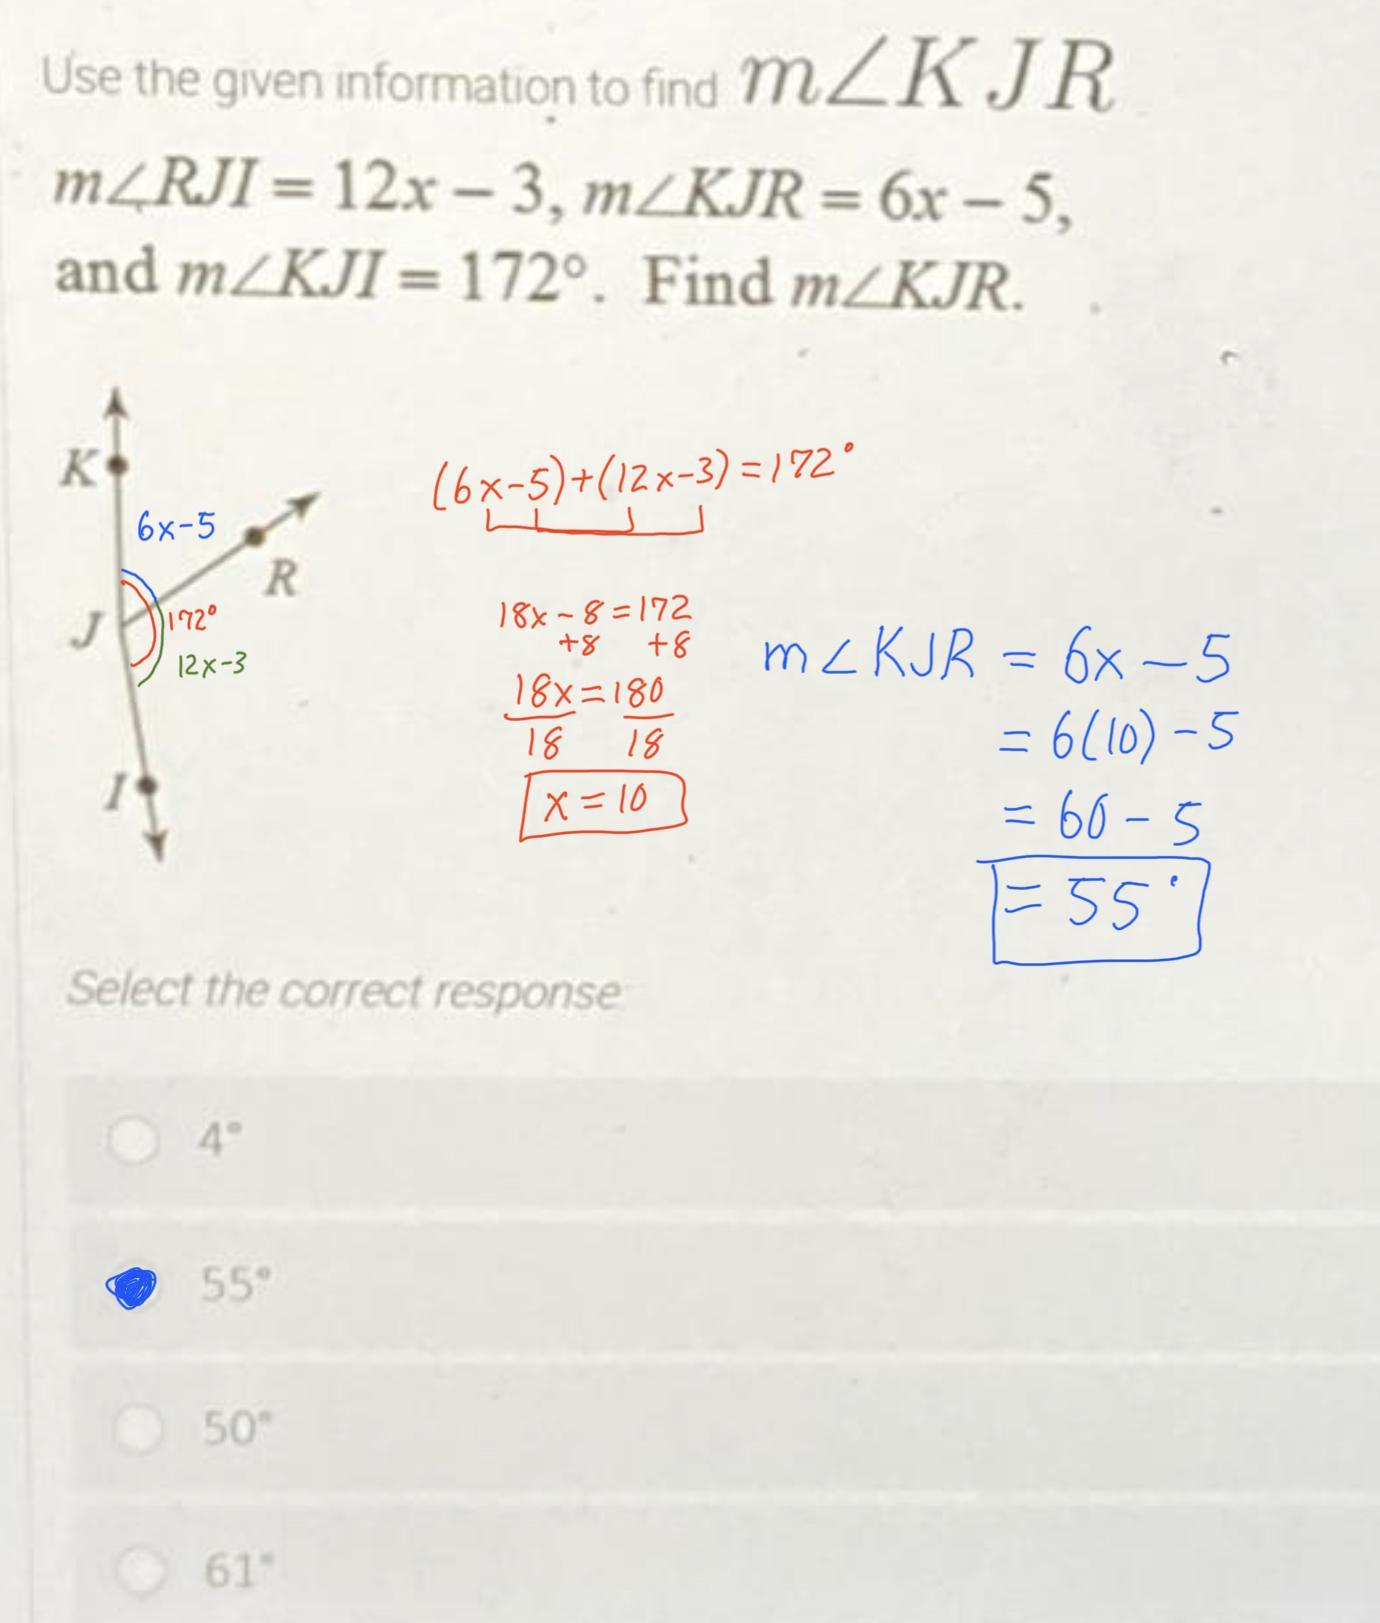 Use the given information to find m∠KJR
m∠RJI = 12x − 3, m∠KJR = 6x − 5,
and m∠KJI = 172°. Find m∠KJR.
K
6x-5
R
J
172°
12x-3
I
(6x-5)+(12x-3)=172°
18x-8=172
+8 +8
18x=180
18 18
x=10
m∠KJR = 6x-5
= 6(10)-5
= 60-5
= 55°
Select the correct response
4°
55°
50°
61°